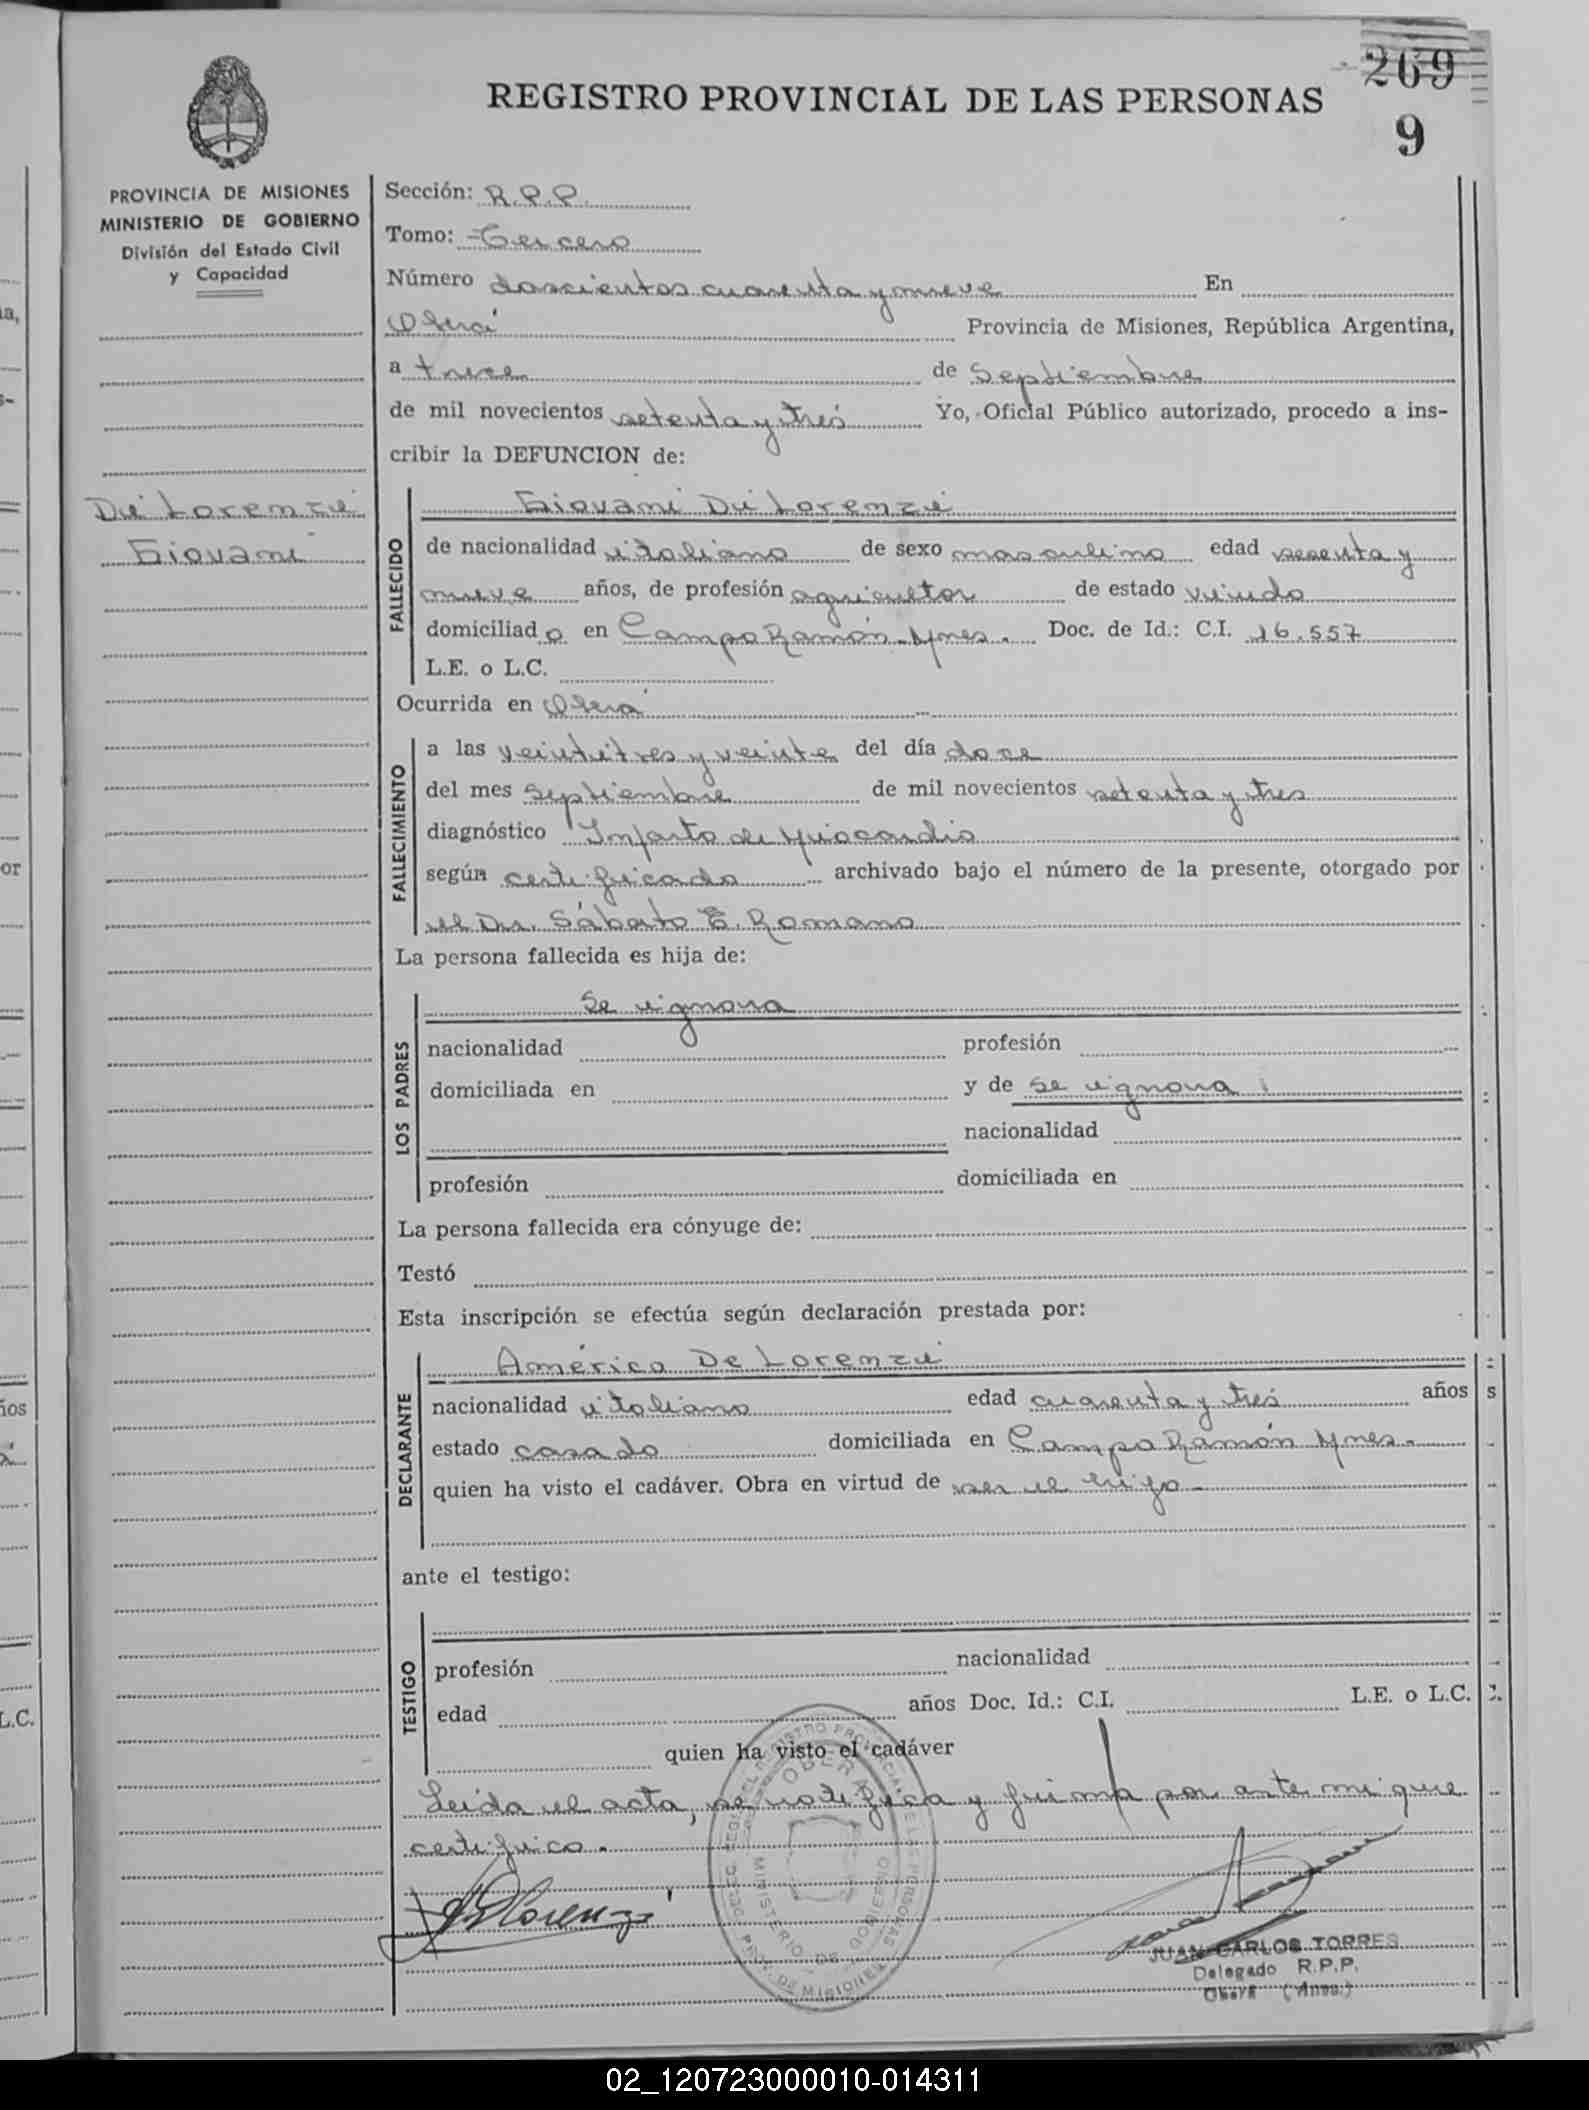 269
REGISTRO PROVINCIAL DE LAS PERSONAS
9
PROVINCIA DE MISIONES
MINISTERIO DE GOBIERNO
División del Estado Civil
y Capacidad
Sección: R.P.P.
Tomo: Tercero
Número doscientos cuarenta y nueve En
Oberá Provincia de Misiones, República Argentina,
a trece de Septiembre
de mil novecientos setenta y tres Yo, Oficial Público autorizado, procedo a ins-
cribir la DEFUNCION de:
Di Lorenzi
Giovani
FALLECIDO
Giovani Di Lorenzi
de nacionalidad italiano de sexo masculino edad sesenta y
nueve años, de profesión agricultor de estado viudo
domiciliado en Campo Ramón Mnes. Doc. de Id.: C.I. 16.557
L.E. o L.C.
Ocurrida en Oberá
FALLECIMIENTO
a las veintitres y veinte del día doce
del mes Septiembre de mil novecientos setenta y tres
diagnóstico Infarto de Miocardio
según certificado archivado bajo el número de la presente, otorgado por
el Dr. Sábato E. Romano
La persona fallecida es hija de:
LOS PADRES
Se ignora
nacionalidad profesión
domiciliada en y de Se ignora
nacionalidad
profesión domiciliada en
La persona fallecida era cónyuge de:
Testó
Esta inscripción se efectúa según declaración prestada por:
DECLARANTE
Américo De Lorenzi
nacionalidad italiano edad cuarenta y tres años
estado casado domiciliada en Campo Ramón Mnes.
quien ha visto el cadáver. Obra en virtud de ser el hijo
ante el testigo:
TESTIGO
profesión nacionalidad
edad años Doc. Id.: C.I. L.E. o L.C.
quien ha visto el cadáver
Leida el acta, se notifica y firma por ante mi que
certifico.
OBERA
MINISTERIO DE GOBIERNO
PROV. DE MISIONES
JUAN CARLOS TORRES
Delegado R.P.P.
Oberá (Mnes.)
02_120723000010-014311